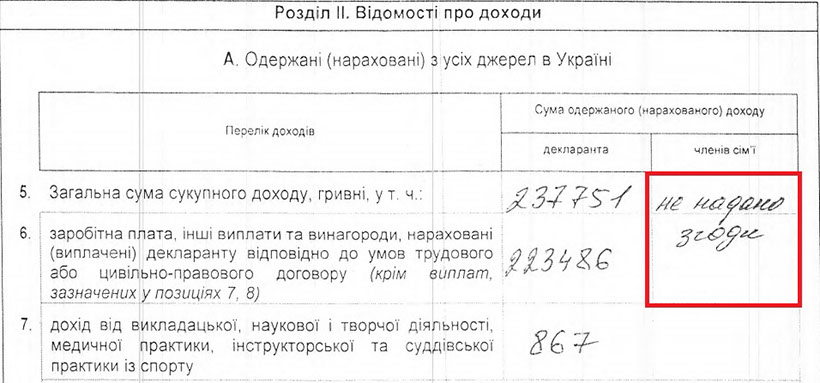 Розділ ІІ. Відомості про доходи
А. Одержані (нараховані) з усіх джерел в Україні
Перелік доходів
Сума одержаного (нарахованого) доходу
декларанта
членів сім'ї
5. Загальна сума сукупного доходу, гривні, у т. ч.: 237751 не надано
згоди
6. заробітна плата, інші виплати та винагороди, нараховані
(виплачені) декларанту відповідно до умов трудового
або цивільно-правового договору (крім виплат, 223486
зазначених у позиціях 7, 8)
7. дохід від викладацької, наукової і творчої діяльності,
медичної практики, інструкторської та суддівської 867
практики із спорту